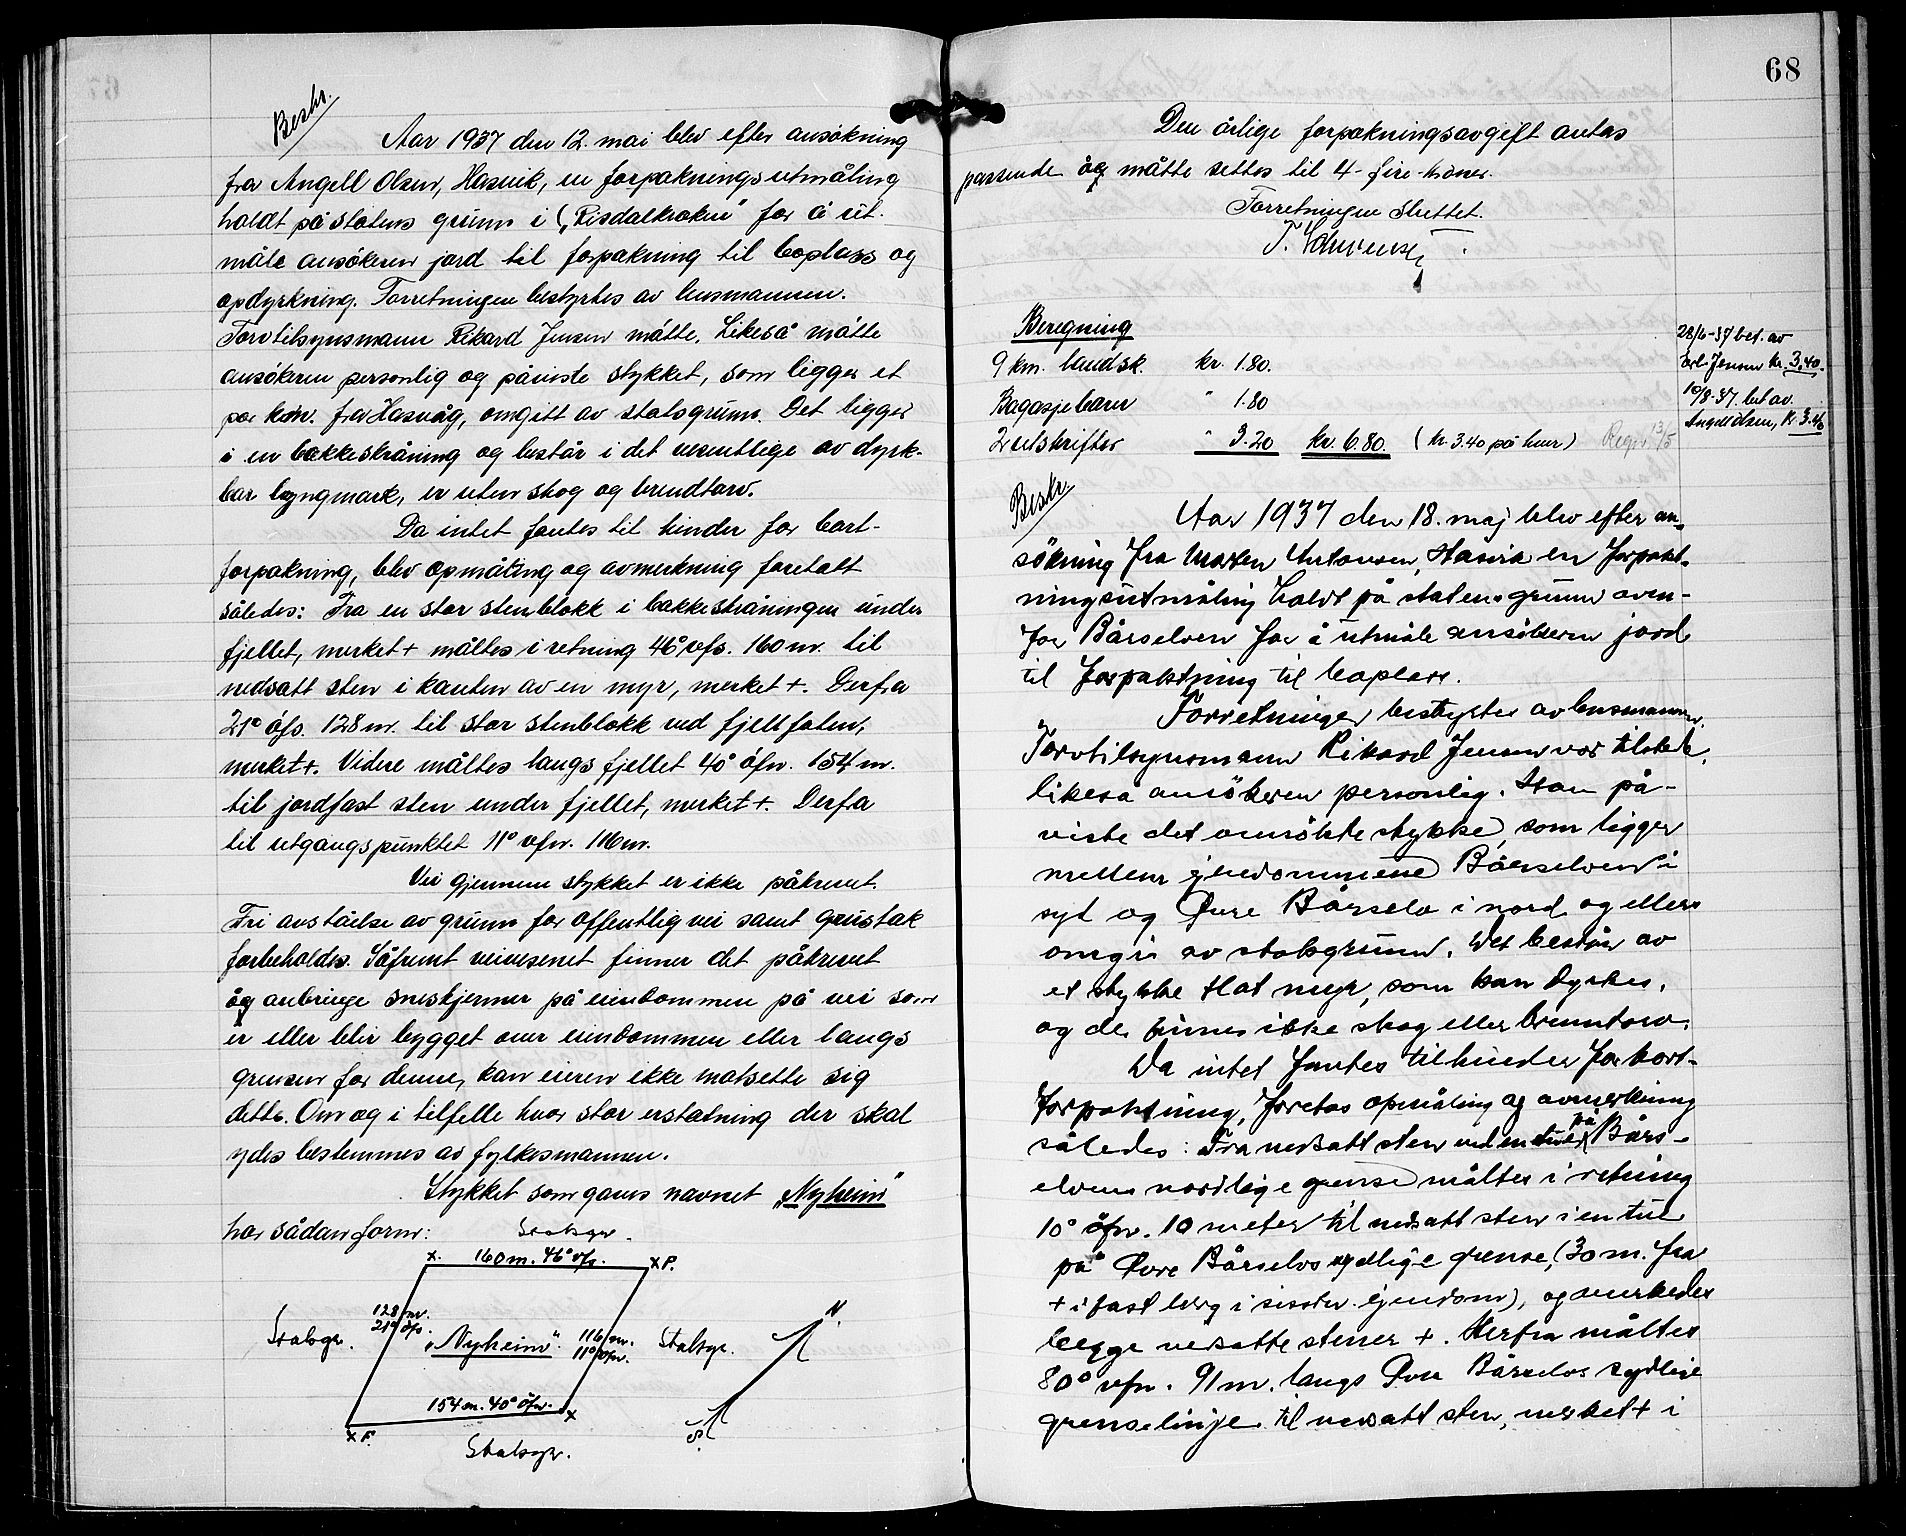 Beskr.
Aar 1937 den 12. mai blev efter ansökning
fra Angell Olsen, Hasvik, en forpakningsutmåling
holdt på statens grunn i „Risdalkroken" for å ut-
måle ansökeren jord til forpakning til boplass og
opdyrkning. Forretningen bestyrtes av lensmannen.
Torvtilsynsmann Rikard Jensen måtte. Likeså måtte
ansökeren personlig og påviste stykket, som ligger et
par km. fra Hasvåg, omgitt av statsgrunn. Det ligger
i en bakkeskråning og består i det vesentlige av dyrk-
bar lyngmark, er uten skog og brendtorv.
Da intet fantes til hinder for bort-
forpakning, blev opmåling og avmerkning foretatt
således: Fra en stor stenblokk i bakkeskråningen under
fjellet, merket + måltes i retning 46° vfs. 160 m. til
nedsatt sten i kanten av en myr, merket +. Derfra
21° öfs. 128 m. til stor stenblokk ved fjellfoten,
merket +. Videre måltes langs fjellet 40° öfn. 154 m.
til jordfast sten under fjellet, merket +. Derfra
til utgangspunktet 11° vfn. 116 m.
Vei gjennem stykket er ikke påkrevet.
Fri avståelse av grunn for offentlig vei samt grustak
forbeholdes. Såfremt veivesenet finner det påkrevet
og anbringe sneskjermer på eiendommen på vei som
er eller blir bygget over eiendommen eller langs
grensen for denne, kan eieren ikke motsette sig
dette. Om og i tilfelle hvor stor erstatning der skal
ydes bestemmes av fylkesmannen.
Stykket som gaves navnet „Nyheim"
har sådan form:
Statsgr.
x. 160 m. 46° vfs. x P.
128 m.
21° öfs.
Statsgr. „Nyheim". 116 m.
11° vfn. Statsgr.
N.
154 m. 40° öfn. x
x F.
S.
Statsgr.
68
Den årlige forpakningsavgift antas
passende og måtte settes til 4 - fire - kroner.
Forretningen sluttet.
Beregning
9 km. landsk. kr. 1.80.
Bagasjebærer " 1.80
2 utskrifter " 3.20 kr. 6.80. (kr. 3.40 på hver) Regn. 13/5
28/6-37 bet. av
Jensen kr. 3.40.
10/8-37. bet av.
Angell Olsen, kr 3.40
Beskr.
Aar 1937 den 18. maj blev efter an-
sökning fra Morten Antonsen, Hasvik en forpakt-
ningsutmåling holdt på statens grunn oven-
for Bårselven for å utmåle ansökeren jord
til forpaktning til boplass.
Forretningen bestyrtes av lensmannen.
Torvtilsynsmann Rikard Jensen var tilstede,
likeså ansökeren personlig. Han på-
viste det ansökte stykke, som ligger
mellem ejendommene Bårselven i
syd og Övre Bårselv i nord og ellers
omgis av statsgrunn. Det består av
et stykke flat myr, som kan dyrkes,
og de finnes ikke skog eller brenntorv.
Da intet fantes til hinder for bort-
forpaktning, foretas opmåling og avmerkning
således: Fra nedsatt sten ved en tue på Bårs-
elvens nordlige grense måltes i retning
10° öfn. 10 meter til nedsatt sten i en tue
på Övre Bårselvs sydlige grense, (30 m. fra
+ i fast berg i sisstn. ejendom), og merkedes
begge nedsatte stener +. Herfra måltes
80° vfn. 91 m. langs Övre Bårselvs sydlige
grenselinje til nedsatt sten, merket + i